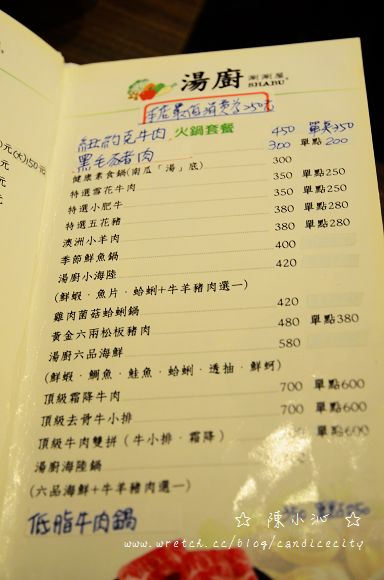 湯廚 涮涮屋
SHABU
本店最低消費為250元
紐約克牛肉 火鍋套餐 450 單點350
黑毛豬肉 300 單點 200
健康素食鍋(南瓜「湯」底) 300
特選雪花牛肉 350 單點250
特選小肥牛 350 單點250
特選五花豬 380 單點280
澳洲小羊肉 380 單點280
季節鮮魚鍋 400
湯廚小海陸 420
(鮮蝦‧魚片‧蛤蜊+牛羊豬肉選一)
雞肉菌菇蛤蜊鍋 420
黃金六兩松板豬肉 480 單點380
湯廚六品海鮮 580
(鮮蝦‧鯛魚‧鮭魚‧蛤蜊‧透抽‧鮮蚵)
頂級霜降牛肉 700 單點600
頂級去骨牛小排 700 單點600
頂級牛肉雙拼(牛小排‧霜降) 單點600
湯廚海陸鍋
(六品海鮮+牛羊豬肉選一)
低脂牛肉鍋 350 單點250
元(大)150元
元
元
☆ 陳小沁 ☆
www.wretch.cc/blog/candicecity